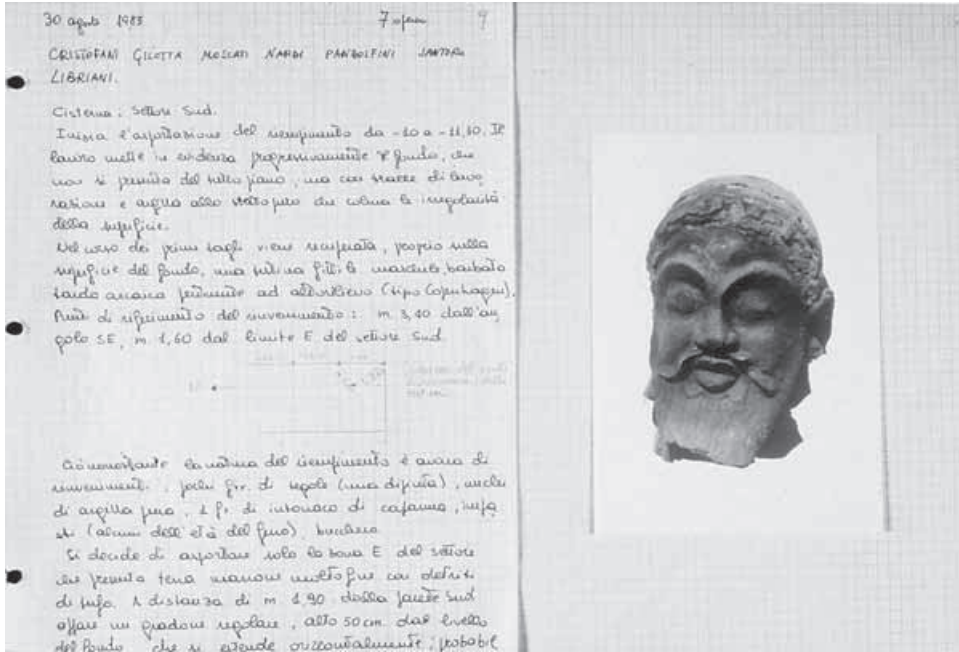 30 agosto 1983 7 operai 9
CRISTOFANI GILOTTA MOSCATI NARDI PANDOLFINI SANTORO
LIBRIANI.
Cisterna: Settore Sud.
Inizia l'asportazione del riempimento da -10 a -11,10. Il
lavoro mette in evidenza progressivamente il fondo, che
non si presenta del tutto piano, ma con tracce di lavo
razione e argilla allo stato puro che colma le irregolarità
della superficie.
Nel corso dei primi tagli viene recuperata, proprio sulla
superficie del fondo, una testina fittile maschile, barbata
tardo arcaica pertinente ad altorilievo (tipo Copenhagen).
Punti di riferimento del rinvenimento: m 3,40 dall'an
golo SE, m 1,60 dal limite E del settore Sud.
Ciononostante la natura del riempimento è avara di
rinvenimenti, pochi fr. di tegole (una dipinta), nuclei
di argilla pura, 1 fr. di intonaco di capanna, impa
sti (alcuni dell'età del ferro) bucchero
Si decide di asportare solo la zona E del settore
che presenta terra marrone molto fine con detriti
di tufo. A distanza di m 1,90 dalla parete Sud
appare un gradone regolare, alto 50 cm dal livello
del fondo che si estende orizzontalmente; probabil